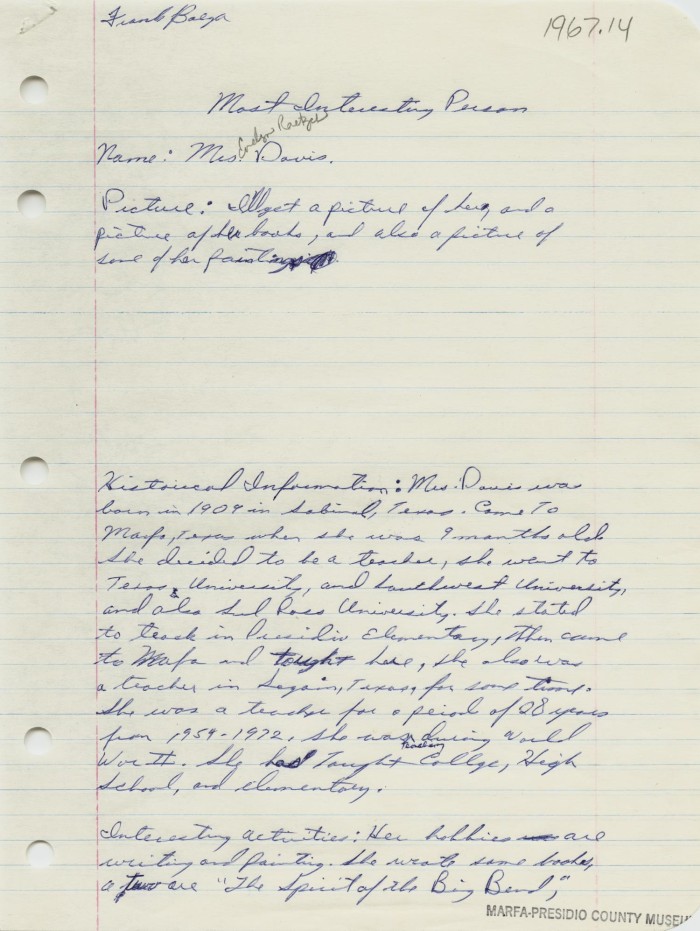 Frank Baeza
1967.14
Most Interesting Person
Evelyn
Name: Mrs. Davis.
Picture: I'll get a picture of her, and a
picture of her books, and also a picture of
some of her paintings
Historical Information: Mrs. Davis was
born in 1909 in Sabinal, Texas. Came To
Marfa, Texas when she was 9 months old
She decided to be a teacher, she went to
Texas, University, and Southwest University,
and also Sul Ross University. She stated
to teach in Presidio Elementary, then came
to Mafa and tought here, she also was
a teacher in Segain, Texas, for some time.
She was a teacher for a period of 28 years
from 1954-1972. She was teaching during World
War II. She had Taught Collge, High
School, and elementary.
Interesting activities: Her hobbies are
writing and painting. She wrote some books,
a two are "The Spirit of the Big Bend,"
MARFA-PRESIDIO COUNTY MUSEU